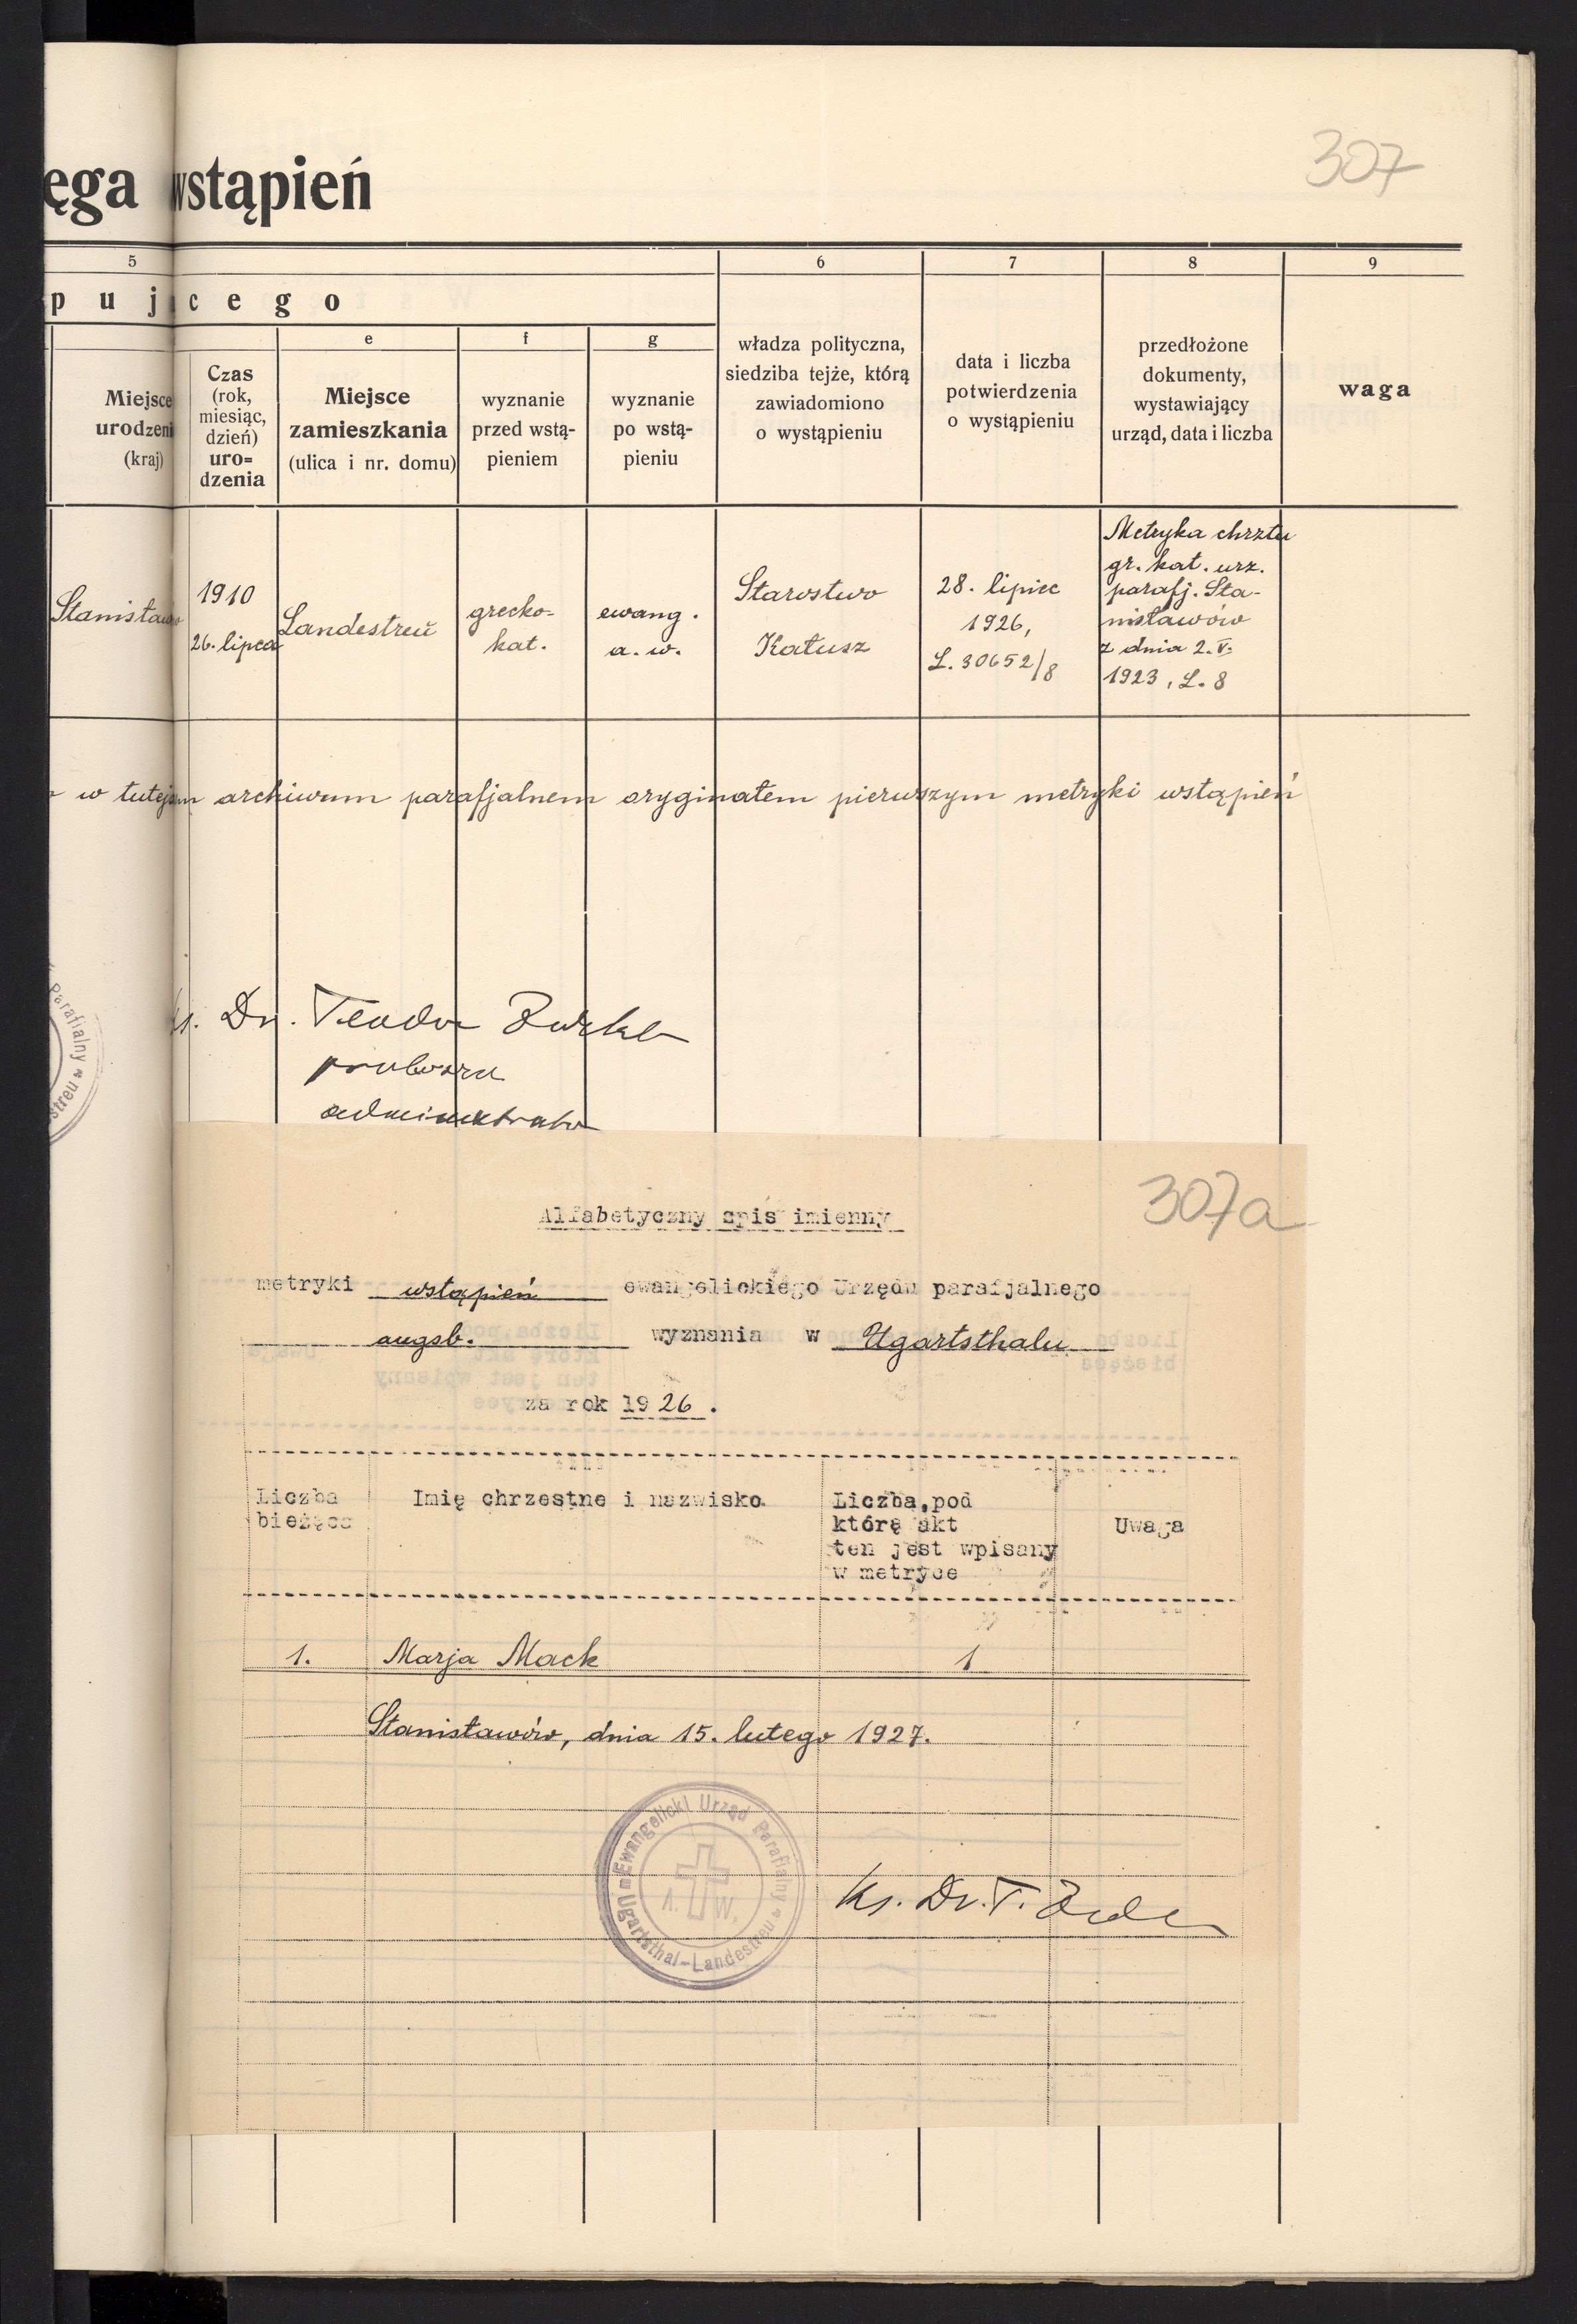 307
ęga wstąpień
5
6
7
8
9
p u j ą c e g o
e
f
g
Miejsce
urodzeni
(kraj)
Czas
(rok,
miesiąc,
dzień)
uro=
dzenia
Miejsce
zamieszkania
(ulica i nr. domu)
wyznanie
przed wstą-
pieniem
wyznanie
po wstą-
pieniu
władza polityczna,
siedziba tejże, którą
zawiadomiono
o wystąpieniu
data i liczba
potwierdzenia
o wystąpieniu
przedłożone
dokumenty,
wystawiający
urząd, data i liczba
waga
Stanisławów
1910
26. lipca
Landestreü
grecko-
kat.
ewang.
a. w.
Starostwo
Kałusz
28. lipiec
1926,
L. 30652/8
Metryka chrztu
gr. kat. urz.
parafj. Sta-
nisławów
z dnia 2. V.
1923, L. 8
w tutejszym archiwum parafjalnem oryginałem pierwszym metryki wstąpień
Ks. Dr. Teodor
administrator
Parafialny
streu
307a
Alfabetyczny spis imienny
metryki wstąpień ewangelickiego Urzędu parafjalnego
augsb. wyznania w Ugartsthalu
za rok 1926.
Liczba
bieżąca
Imię chrzestne i nazwisko
Liczba,pod
którą akt
ten jest wpisany
w metryce
Uwaga
1. Marja Mack 1
Stanisławów, dnia 15. lutego 1927.
Ewangelicki Urząd Parafialny w Ugartsthal-Landestreu
A. W.
Ks. Dr. T.